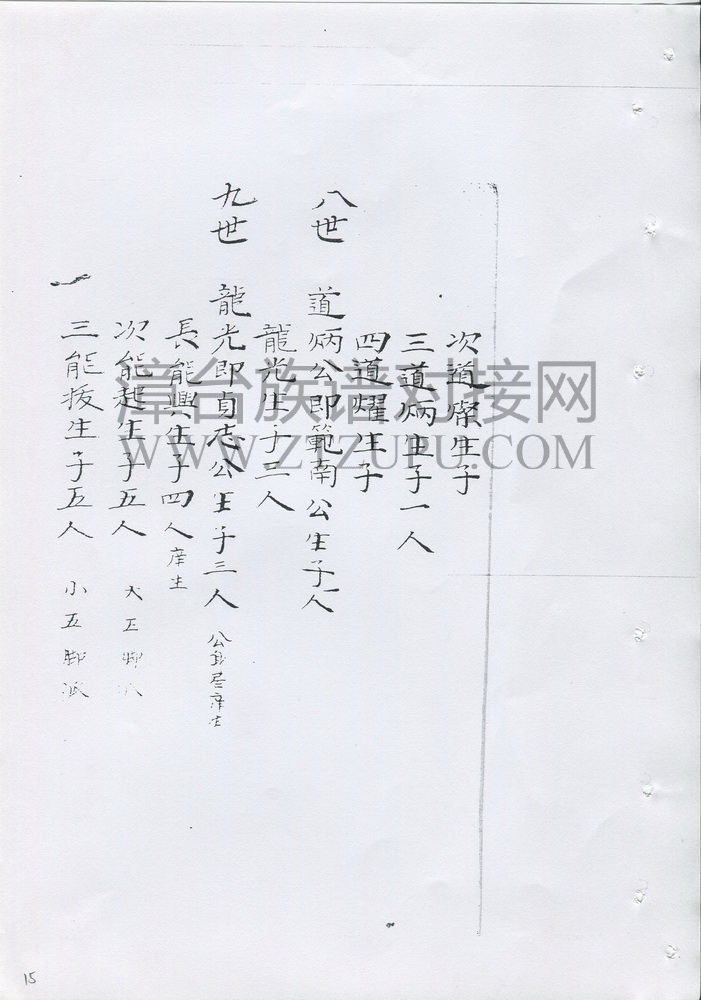 次道燦生子
三道炳生子一人
四道燿生子
八世 道炳公即範南公生子一人
龍光生子三人
九世 龍光即貞志公生子三人
長能興生子四人 庠生
次能起生子五人 大五
三能拔生子五人 小五腳派
漳台族谱对接网
WWW.ZTZUPU.COM
15